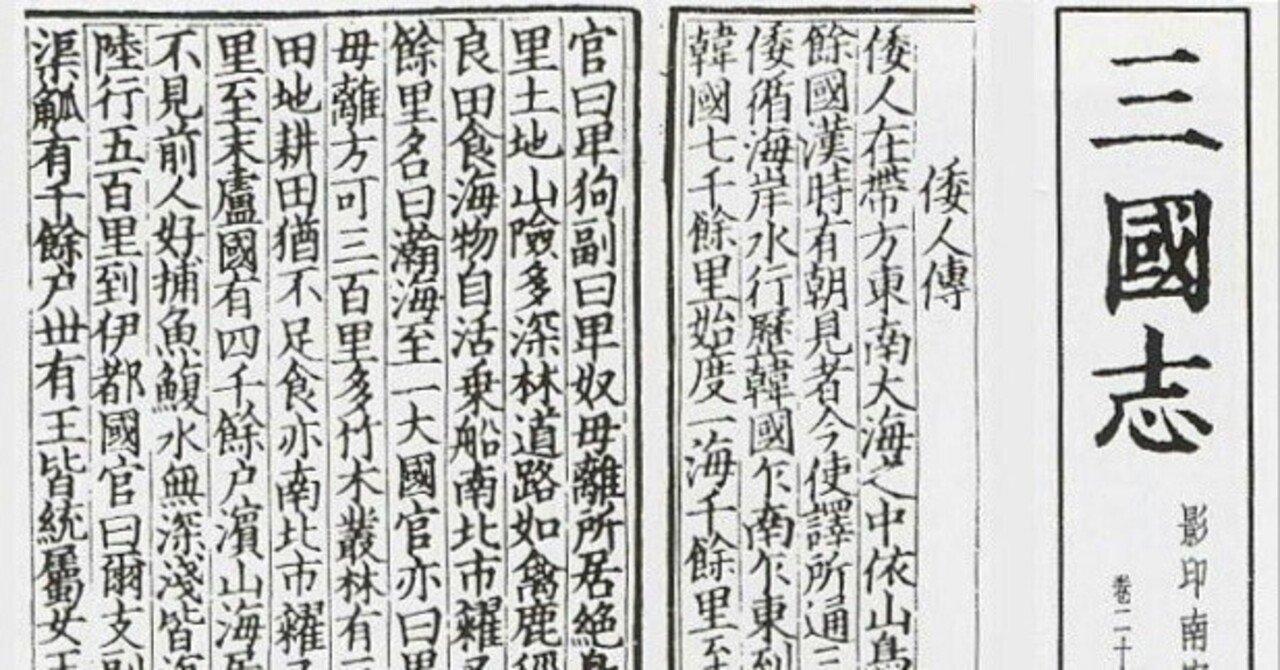 三國志
影印南
卷二十
倭人傳
倭人在帶方東南大海之中依山島
餘國漢時有朝見者今使譯所通三
倭循海岸水行歷韓國乍南乍東到
韓國七千餘里始度一海千餘里至
官曰卑狗副曰卑奴毋離所居絶島
里土地山險多深林道路如禽鹿徑
良田食海物自活乗船南北市糴
餘里名曰瀚海至一大國官亦曰卑
毋離方可三百里多竹木叢林有三
田地耕田猶不足食亦南北市糴
里至末盧國有四千餘户濱山海居
不見前人好捕魚鰒水無深淺皆
陸行五百里到伊都國官曰爾支副
渠觚有千餘户丗有王皆統屬女王